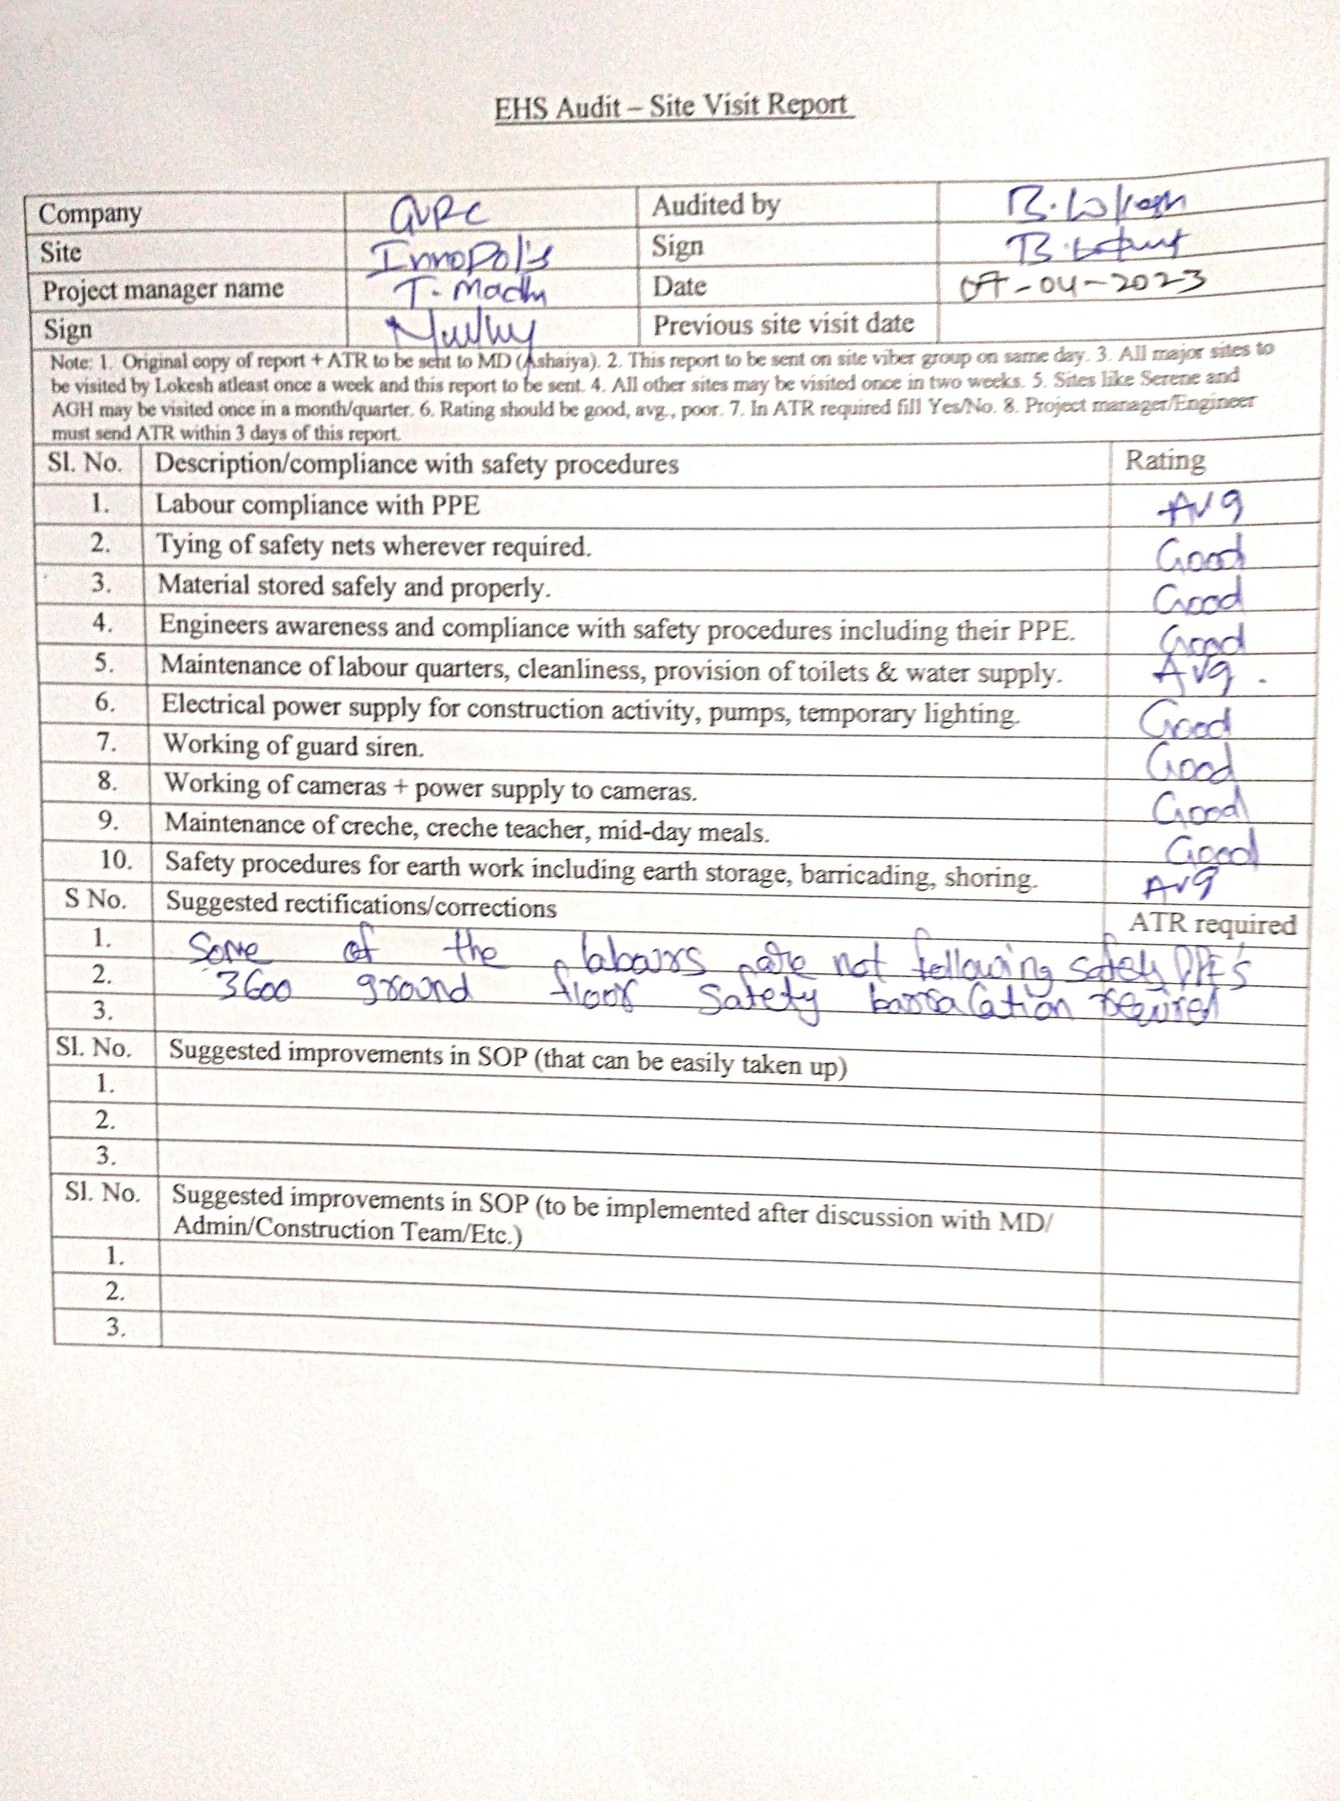 EHS Audit – Site Visit Report
Company GVRC Audited by B. Lokesh
Site Innopolis Sign
Project manager name T. Madhu Date 07-04-2023
Sign Previous site visit date
Note: 1. Original copy of report + ATR to be sent to MD (Ashaiya). 2. This report to be sent on site viber group on same day. 3. All major sites to
be visited by Lokesh atleast once a week and this report to be sent. 4. All other sites may be visited once in two weeks. 5. Sites like Serene and
AGH may be visited once in a month/quarter. 6. Rating should be good, avg., poor. 7. In ATR required fill Yes/No. 8. Project manager/Engineer
must send ATR within 3 days of this report.
Sl. No. Description/compliance with safety procedures Rating
1. Labour compliance with PPE Avg
2. Tying of safety nets wherever required. Good
3. Material stored safely and properly. Good
4. Engineers awareness and compliance with safety procedures including their PPE. Good
5. Maintenance of labour quarters, cleanliness, provision of toilets & water supply. Avg.
6. Electrical power supply for construction activity, pumps, temporary lighting. Good
7. Working of guard siren. Good
8. Working of cameras + power supply to cameras. Good
9. Maintenance of creche, creche teacher, mid-day meals. Good
10. Safety procedures for earth work including earth storage, barricading, shoring. Avg
S No. Suggested rectifications/corrections ATR required
1. Some of the labours are not following safety PPE's
2. 3600 ground floor safety barracation required
3.
Sl. No. Suggested improvements in SOP (that can be easily taken up)
1.
2.
3.
Sl. No. Suggested improvements in SOP (to be implemented after discussion with MD/
Admin/Construction Team/Etc.)
1.
2.
3.